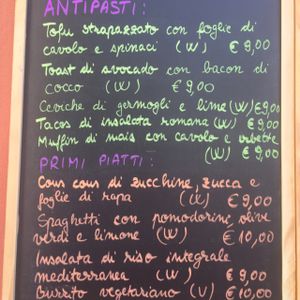 ANTIPASTI:
Tofu strapazzato con foglie di
cavolo e spinaci (W) € 9,00
Toast di avocado con bacon di
cocco (W) € 9,00
Ceviche di germogli e lime (W) € 9,00
Tacos di insalata romana (W) € 9,00
Muffin di mais con cavolo e erbette
(W) € 9,00
PRIMI PIATTI:
Cous cous di zucchine, zucca e
foglie di rapa (W) € 9,00
Spaghetti con pomodorini, olive
verdi e limone (W) € 10,00
Insalata di riso integrale
mediterranea (W) € 9,00
Burrito vegetariano (V) € 10,00